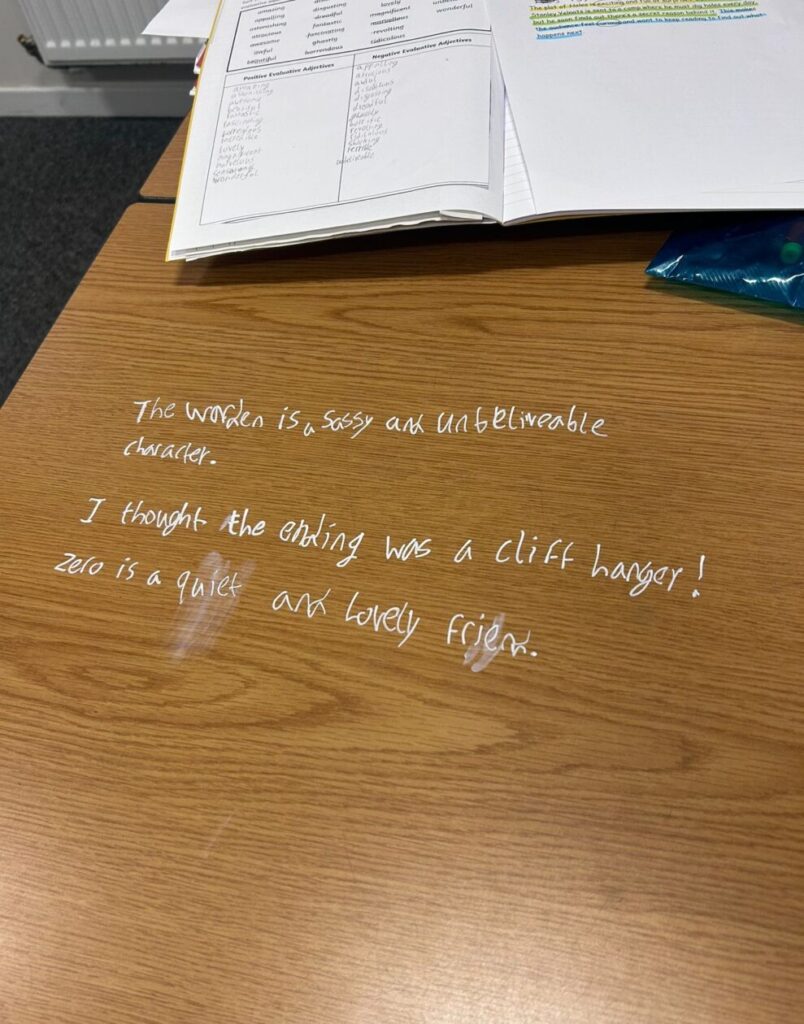 amazing disgusting lovely
appalling dreadful magnificent wonderful
astonishing fantastic marvellous
atrocious fascinating revolting
awesome ghastly ridiculous
awful horrendous
beautiful
Positive Evaluative Adjectives Negative Evaluative Adjectives
amazing
astonishing
awesome
fantastic
fascinating
lovely
magnificent
wonderful
appalling
atrocious
awful
disgusting
dreadful
ghastly
horrific
revolting
ridiculous
shocking
terrible
Stanley Yelnats is sent to a camp where he must dig holes every day,
but he soon finds out there's a secret reason behind it. This makes
the audience feel curious and want to keep reading to find out what
happens next.
The warden is a sassy and unbeliveable
character.
I thought the ending was a cliff hanger!
Zero is a quiet and lovely friend.